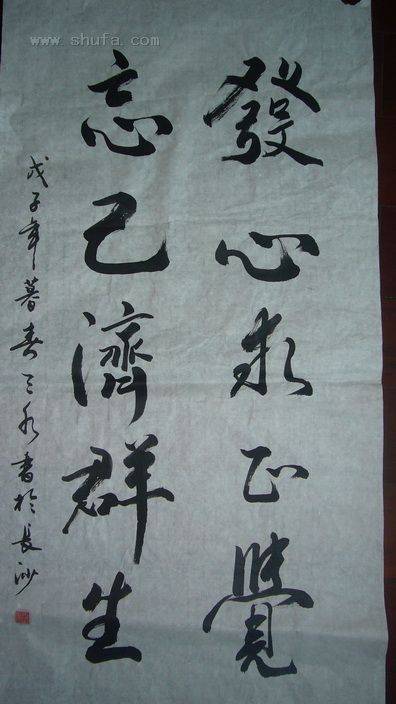 發心求正覺
忘己濟群生
戊子年暮春三水書於長沙
www.shufa.com